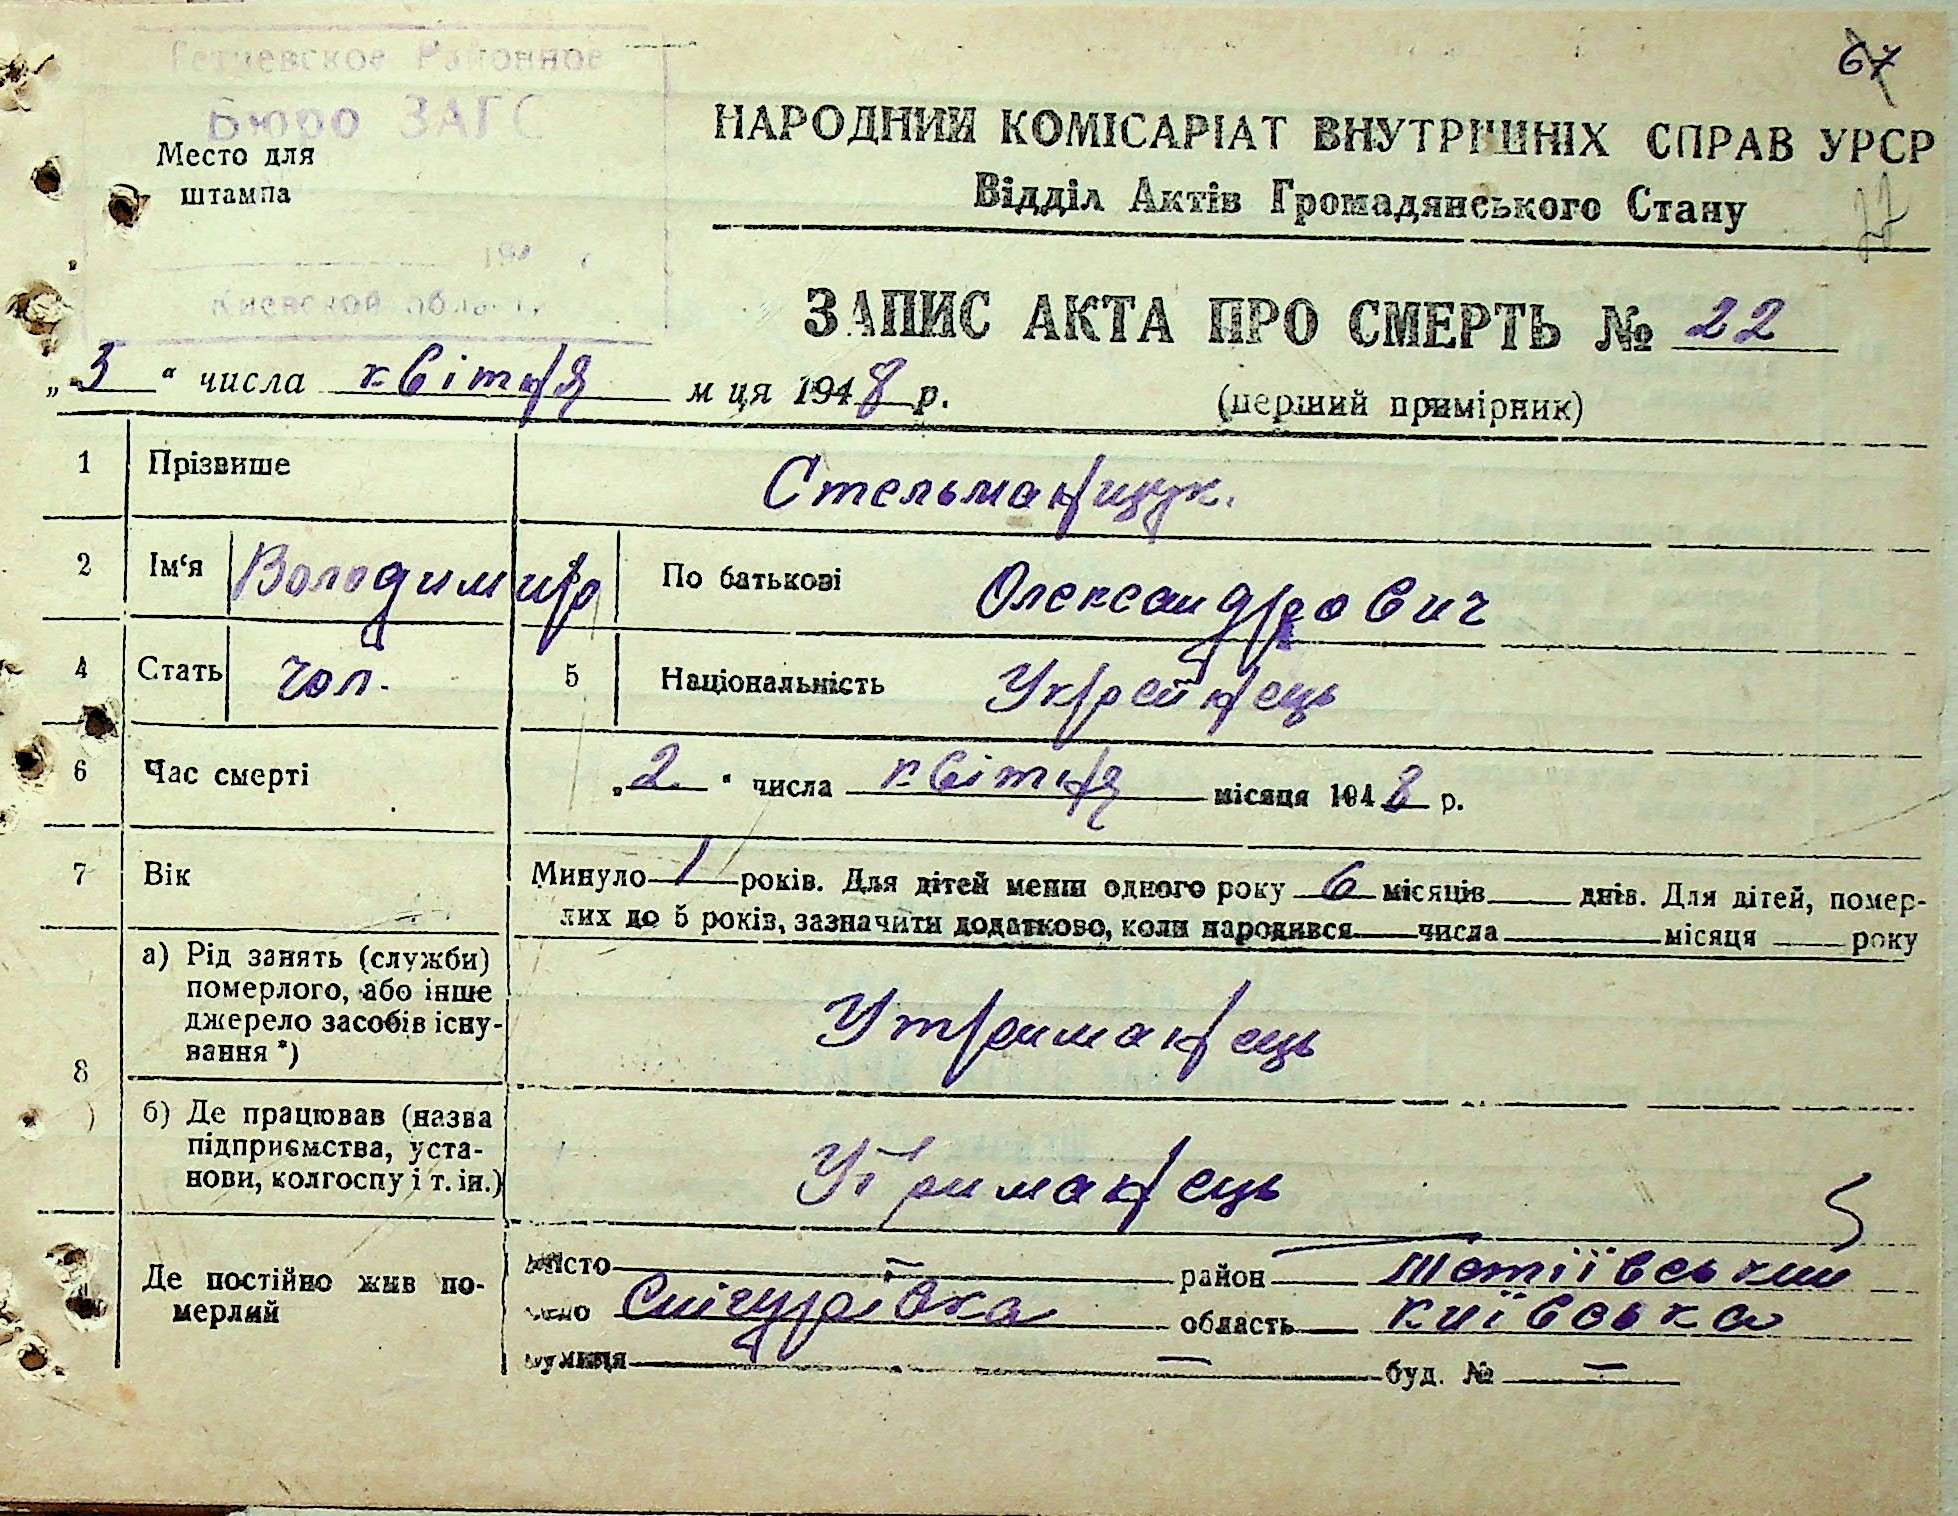 67
Тетиевское Районное
Бюро ЗАГС
Место для
штампа
194
Киевской области
НАРОДНИЙ КОМІСАРІАТ ВНУТРІШНІХ СПРАВ УРСР
Відділ Актів Громадянського Стану
77
ЗАПИС АКТА ПРО СМЕРТЬ № 22
„3“ числа квітня м ця 1948 р.
(перший примірник)
1 Прізвише Стельманщук.
2 Ім‘я Володимир По батькові Олександрович
4 Стать чол. 5 Національність Украйнець
6 Час смерті „2“ числа квітня місяця 1948 р.
7 Вік Минуло 1 років. Для дітей менш одного року 6 місяців днів. Для дітей, помер-
лих до 5 років, зазначити додатково, коли народився числа місяця року
8 а) Рід занять (служби)
померлого, або інше
джерело засобів існу-
вання *)
Утриманець
б) Де працював (назва
підприємства, уста-
нови, колгоспу і т. ін.)
Утриманець
Де постійно жив по-
мерлий
місто — район Тетіївський
село Снігурівка область київська
вулиця — буд. № —